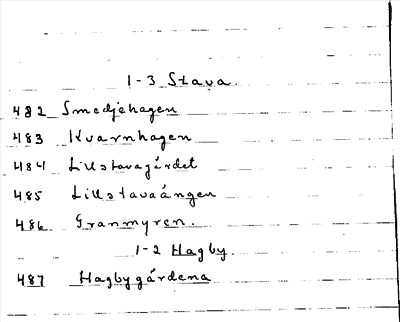 1-3 Stava.
482 Smedjehagen
483 Kvarnhagen
484 Lillstavagärdet
485 Lillstavaängen
486 Granmyren.
1-2 Hagby.
487 Hagbygärdena